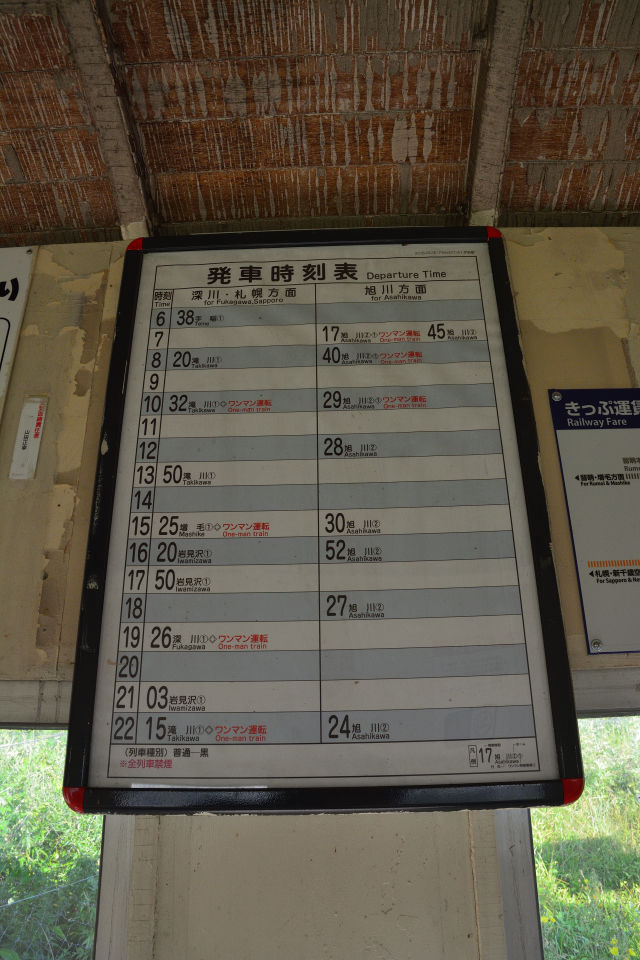 発車時刻表 Departure Time
時刻 Time
深川・札幌方面 for Fukagawa,Sapporo
旭川方面 for Asahikawa
6 38 手稲① Teine
7 17 旭川②①ワンマン運転 Asahikawa One-man train 45 旭川② Asahikawa
8 20 滝川① Takikawa 40 旭川②①ワンマン運転 Asahikawa One-man train
9
10 32 滝川①◇ワンマン運転 Takikawa One-man train 29 旭川②①ワンマン運転 Asahikawa One-man train
11
12 28 旭川② Asahikawa
13 50 滝川① Takikawa
14
15 25 増毛①◇ワンマン運転 Mashike One-man train 30 旭川② Asahikawa
16 20 岩見沢① Iwamizawa 52 旭川② Asahikawa
17 50 岩見沢① Iwamizawa
18 27 旭川② Asahikawa
19 26 深川①◇ワンマン運転 Fukagawa One-man train
20
21 03 岩見沢① Iwamizawa
22 15 滝川①◇ワンマン運転 Takikawa One-man train 24 旭川② Asahikawa
(列車種別) 普通―黒
※全列車禁煙
凡例 17 旭川 Asahikawa
い
きっぷ運賃
Railway Fare
◀留萌・増毛方面
For Rumoi & Mashike
◀札幌・新千歳空
For Sapporo & Ne